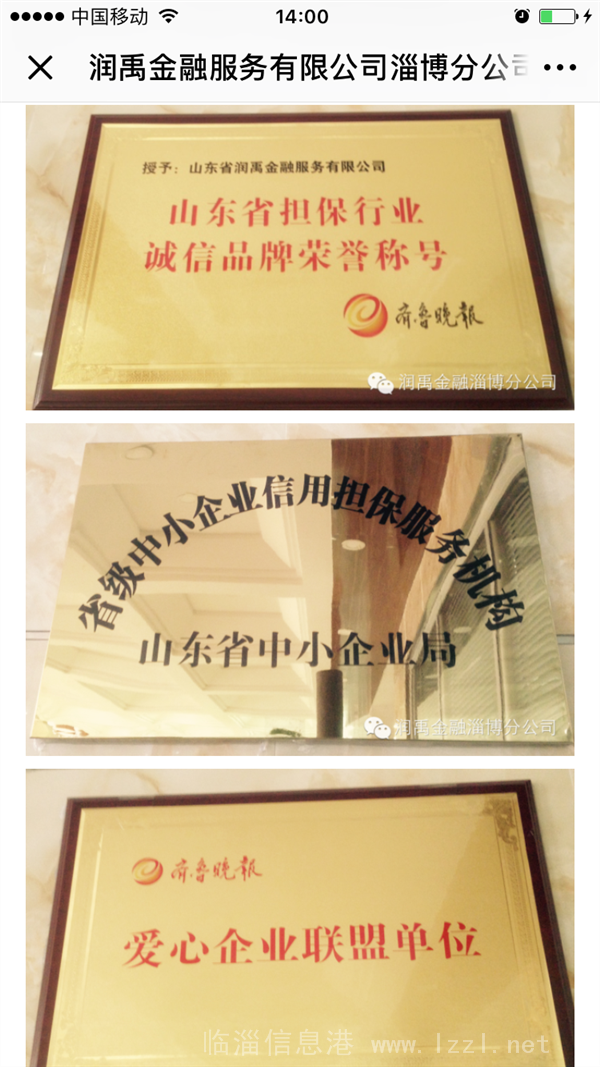 中国移动
14:00
润禹金融服务有限公司淄博分公司
授予：山东省润禹金融服务有限公司
山东省担保行业
诚信品牌荣誉称号
齐鲁晚报
润禹金融淄博分公司
省级中小企业信用担保服务机构
山东省中小企业局
润禹金融淄博分公司
齐鲁晚报
爱心企业联盟单位
临淄信息港 www.lzzl.net